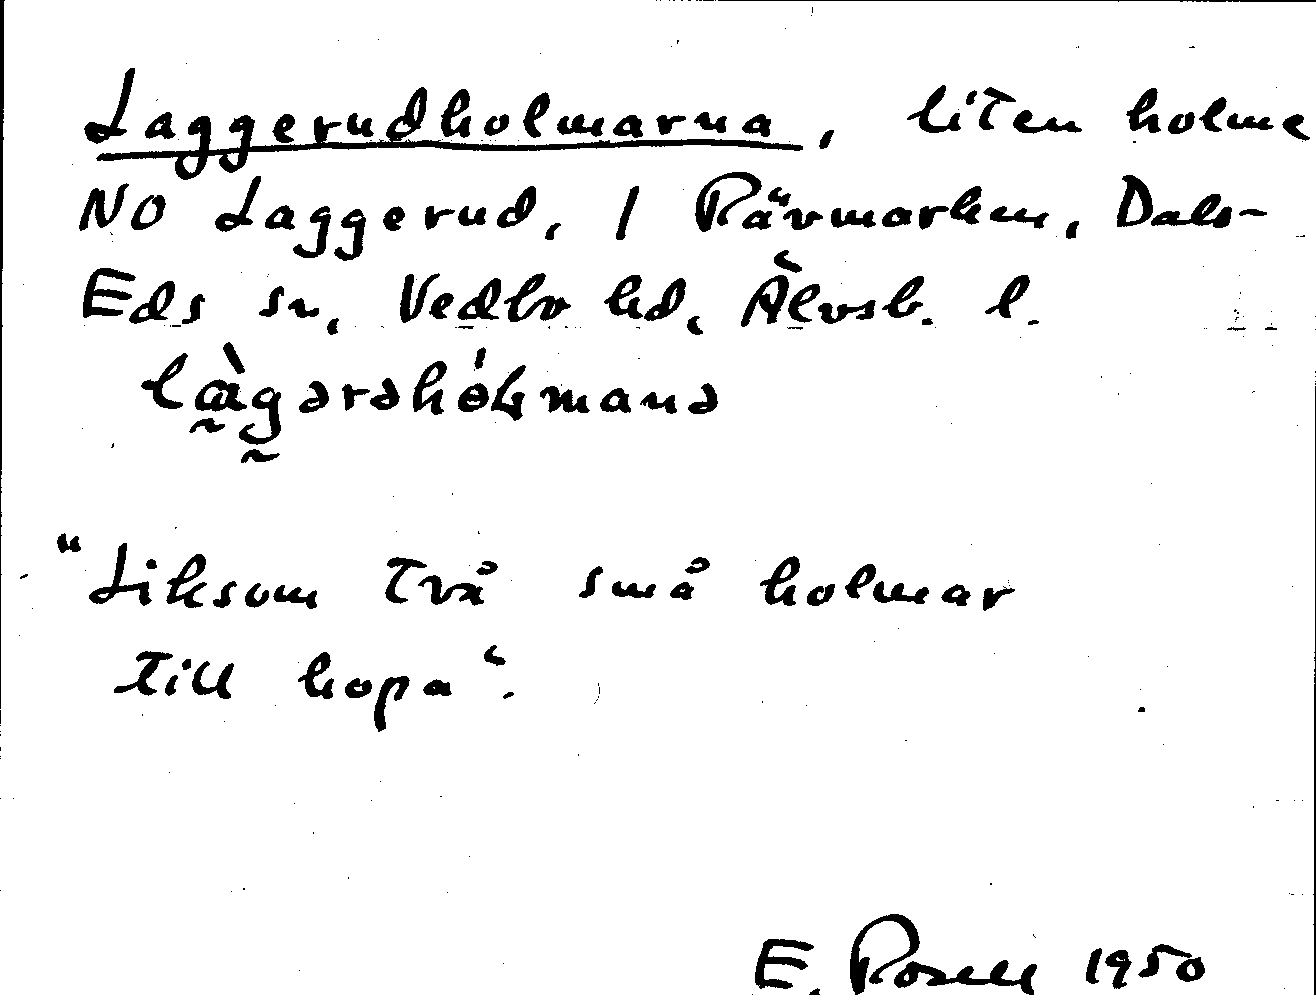 Laggerudholmarna, liten holme
NO Laggerud, 1 Rävmarken, Dals-
Eds sn, Vedbo hd, Älvsb. l.
"Liksom två små holmar
till hopa".
E. Rosell 1950